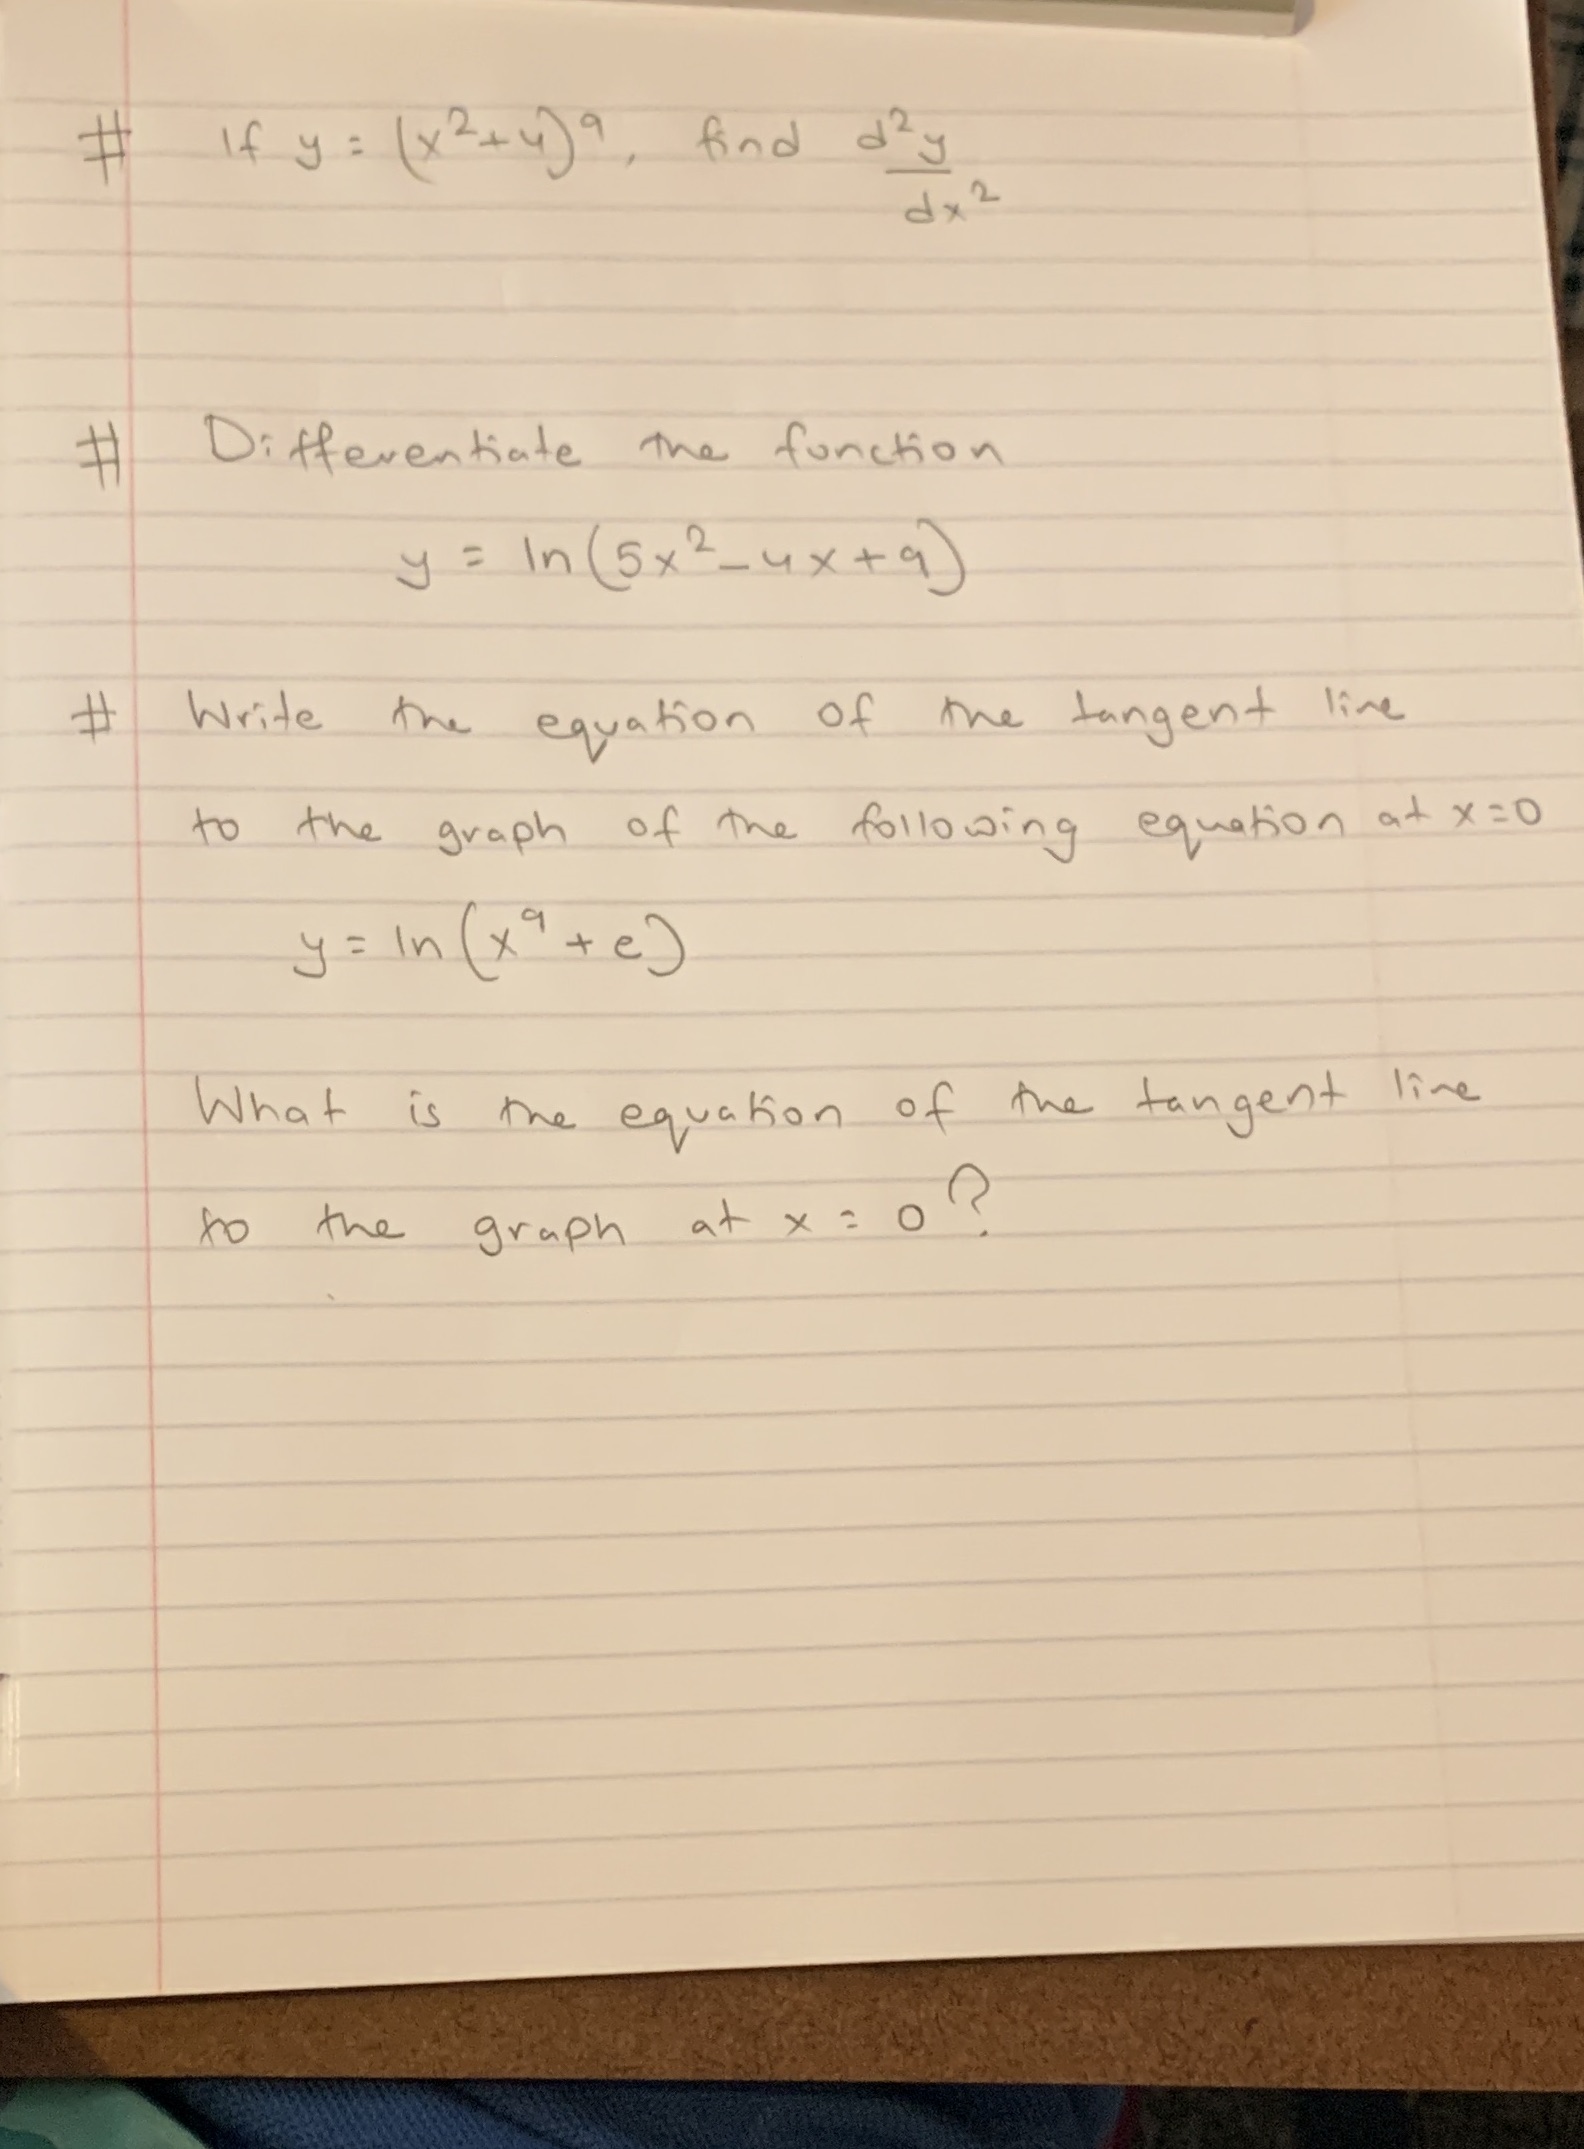 # If y = (x²+4)⁹, find d²y/dx²
# Differentiate the function
y = ln(5x²-4x+9)
# Write the equation of the tangent line
to the graph of the following equation at x=0
y = ln(x⁹+e)
What is the equation of the tangent line
to the graph at x = 0?